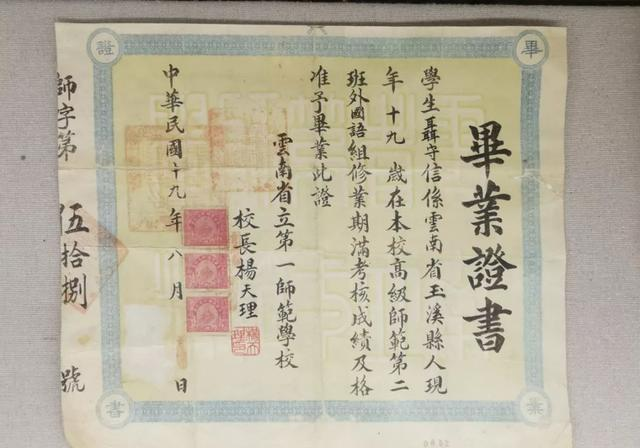 畢業證書
學生聶守信係雲南省玉溪縣人現
年十九歲在本校高級師範第二
班外國語組修業期滿考核成績及格
准予畢業此證
雲南省立第一師範學校
校長楊天理
中華民國十九年八月 日
師字第伍拾捌號
畢
業
證
書